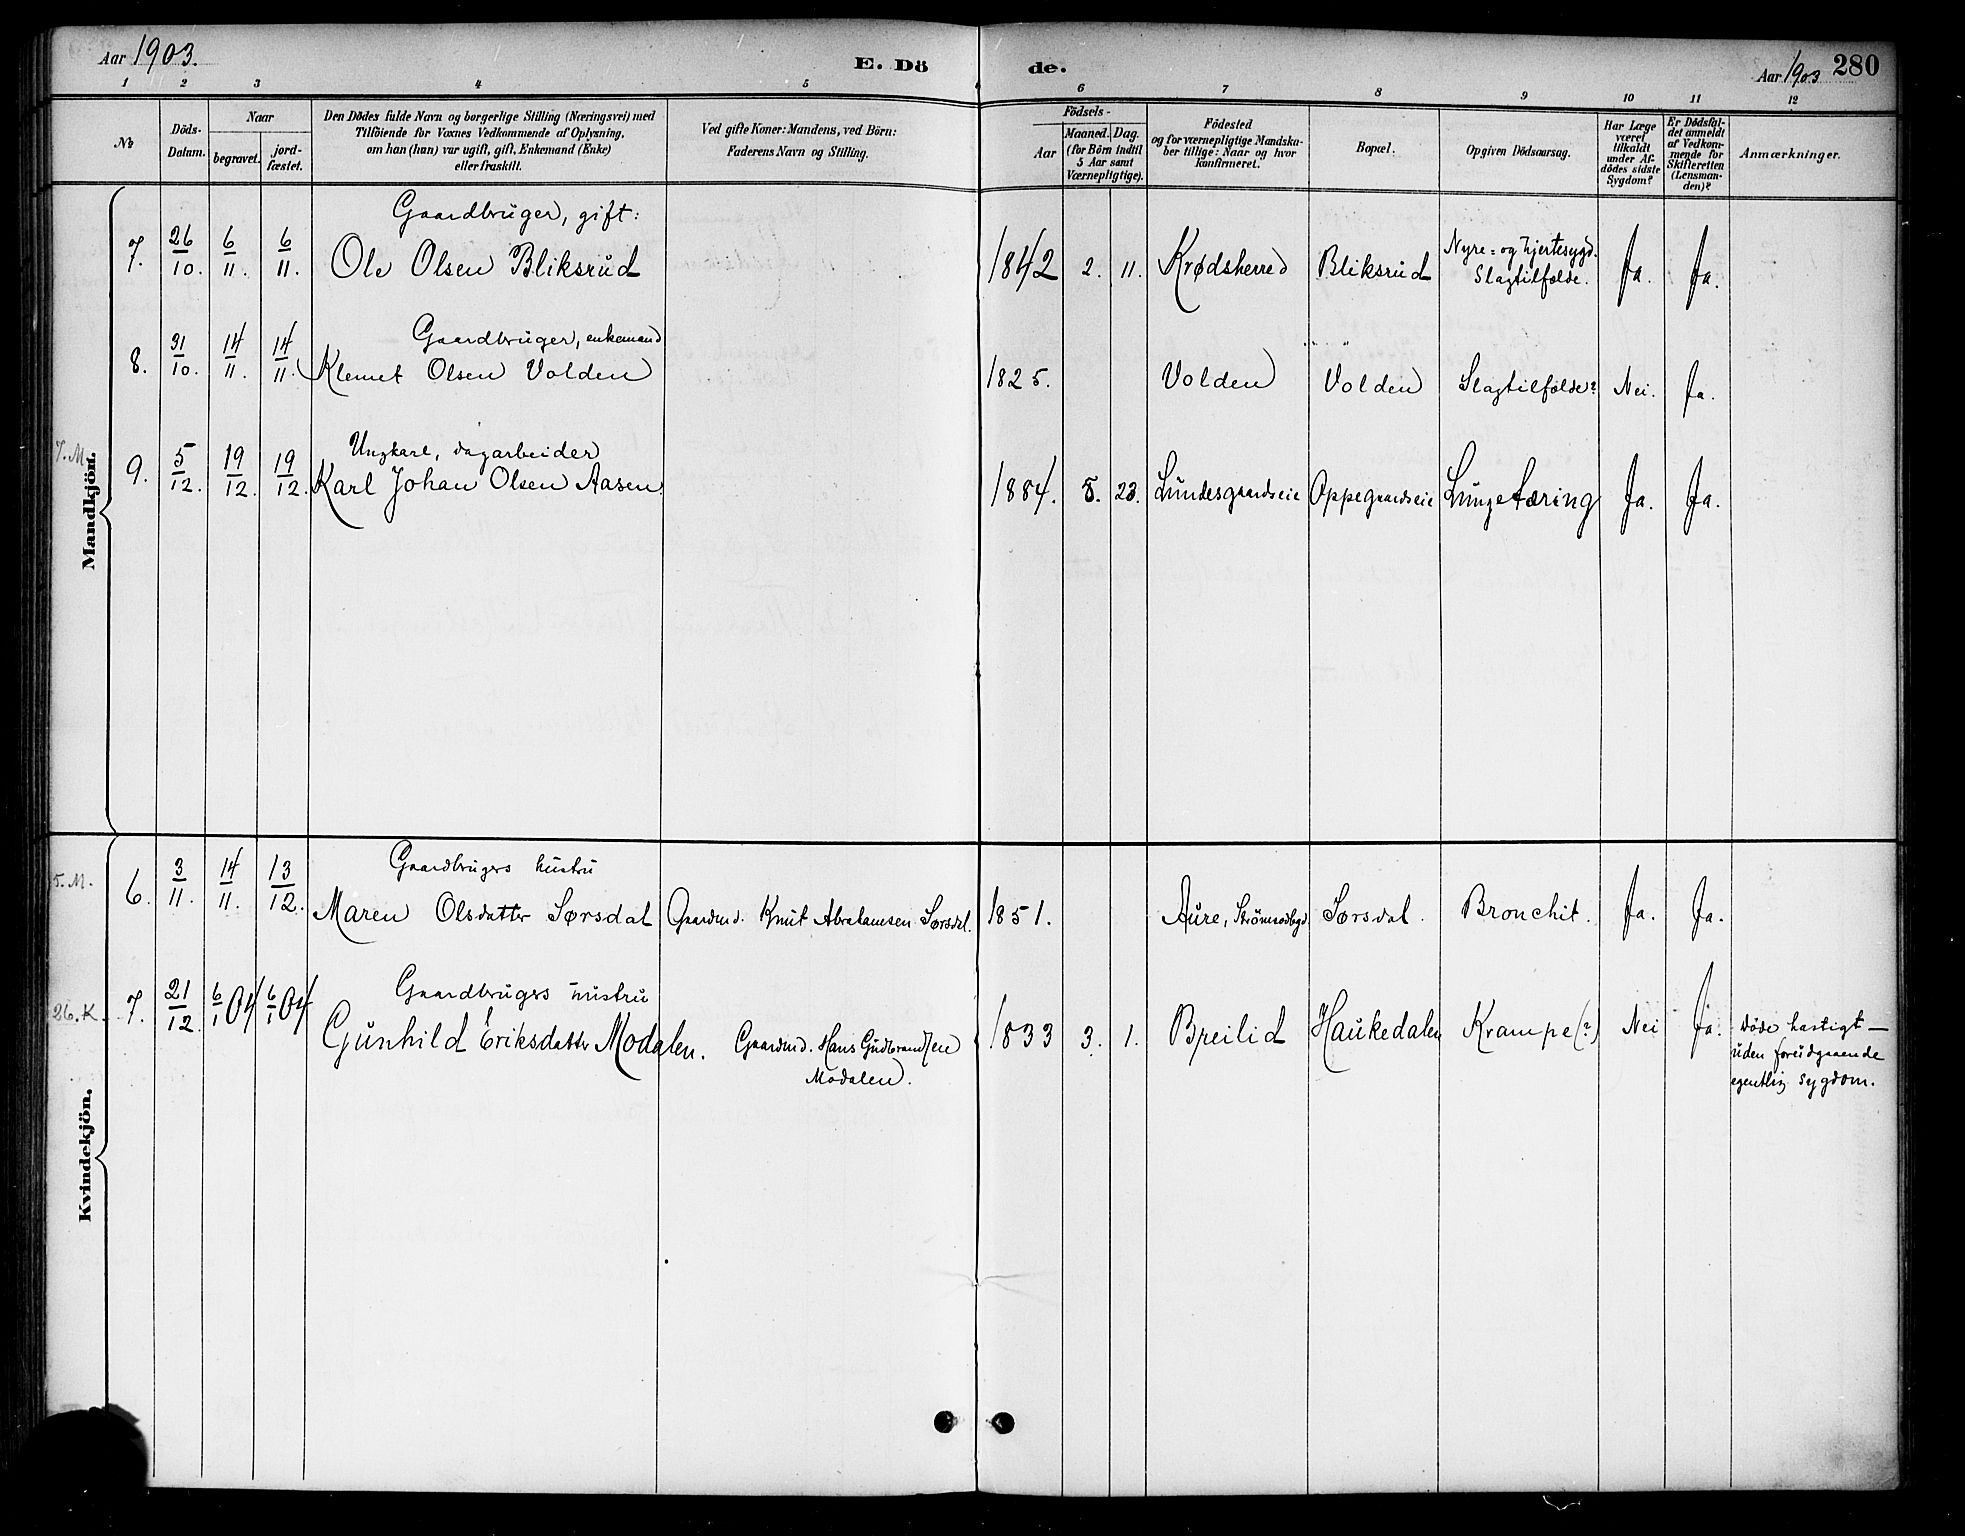 Aar 1903.
E. Dö
de.
Aar 1903
280
1 2 3 4 5 6 7 8 9 10 11 12
№
Döds-
Datum.
Naar
begravet.
jord-
fæstet.
Den Dödes fulde Navn og borgerlige Stilling (Næringsvei) med
Tilföiende for Voxnes Vedkommende af Oplysning,
om han (hun) var ugift, gift, Enkemand (Enke)
eller fraskilt.
Ved gifte Koner: Mandens, ved Börn:
Faderens Navn og Stilling.
Födsels-
Aar
Maaned. Dag.
(for Börn indtil
5 Aar samt
Værnepligtige).
Födested
og for værnepligtige Mandska-
ber tillige: Naar og hvor
konfirmeret.
Bopæl.
Opgiven Dödsaarsag.
Har Læge
været
tilkaldt
under Af-
dödes sidste
Sygdom?
Er Dödsfal-
det anmeldt
af Vedkom-
mende for
Skifteretten
(Lensman-
den)?
Anmærkninger.
Mandkjön.
Gaardbruger, gift:
7. 26/10. 6/11. 6/11. Ole Olsen Bliksrud 1842 2. 11. Krødsherred Bliksrud Nyre= og hjertesygd. Ja. Ja.
Slagtilfælde.
Gaardbruger, enkemand
8. 31/10. 14/11. 14/11. Klemet Olsen Volden 1825. Volden Volden Slagtilfælde? Nei. Ja.
7. M.
Ungkarl, dagarbeider
9. 5/12. 19/12. 19/12. Karl Johan Olsen Aasen. 1884. 8. 23. Lundesgaardseie Oppegaardseie Lungetæring Ja. Ja.
Kvindekjön.
5. M.
Gaardbrugers hustru
6. 3/11. 14/11. 13/12. Maren Olsdatter Sørsdal Gaardmd. Knut Abrahamsen Sørsdal. 1851. Aure, Strömsodbygd Sørsdal. Bronchit. Ja. Ja.
26. K.
Gaardbrugers hustru
7. 21/12. 6/1 04 6/1 04 Gunhild Eriksdatter Modalen. Gaardmd. Hans Gudbrandsen 1833 3. 1. Breilid Haukedalen Krampe (?) Nei Ja. Døde hastigt —
Modalen.
uden forudgaaende
egentlig sygdom.